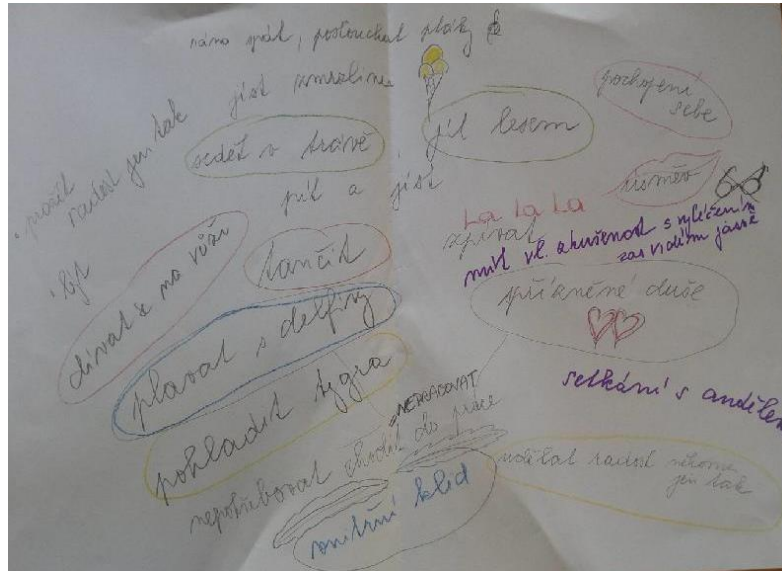 ráno spát, poslouchat ptáky
jíst zmrzlinu
pochopení
sebe
jít lesem
sedět v trávě
prožít
radost jen tak
pít a jíst
úsměv
La La La
zpívat
mít vl. zkušenost s vyléčením
zas vidím jasně
být
dívat se na růži
tančit
spřízněné duše
plavat s delfíny
pohladit tygra
setkání s andělem
NEPRACOVAT
nepotřebovat chodit do práce
udělat radost někomu
jen tak
vnitřní klid